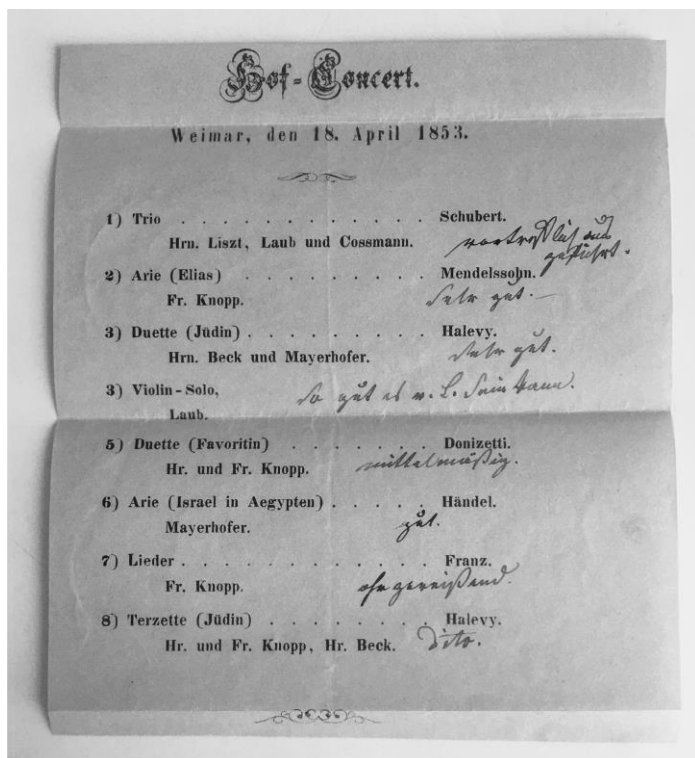 Hof-Concert.
Weimar, den 18. April 1853.
1) Trio . . . . . . . . . . . . Schubert.
Hrn. Liszt, Laub und Cossmann. vortrefflich aus
geführt.
2) Arie (Elias) . . . . . . . . . Mendelssohn.
Fr. Knopp. Sehr gut.—
3) Duette (Jüdin) . . . . . . . . . Halevy.
Hrn. Beck und Mayerhofer. Sehr gut.
3) Violin-Solo, So gut es v. L. sein kann.
Laub.
5) Duette (Favoritin) . . . . . . . Donizetti.
Hr. und Fr. Knopp. mittelmäßig.
6) Arie (Israel in Aegypten) . . . . . Händel.
Mayerhofer. gut.
7) Lieder . . . . . . . . . . . . Franz.
Fr. Knopp. ohrzereißend.
8) Terzette (Jüdin) . . . . . . . . Halevy.
Hr. und Fr. Knopp, Hr. Beck. Dito.